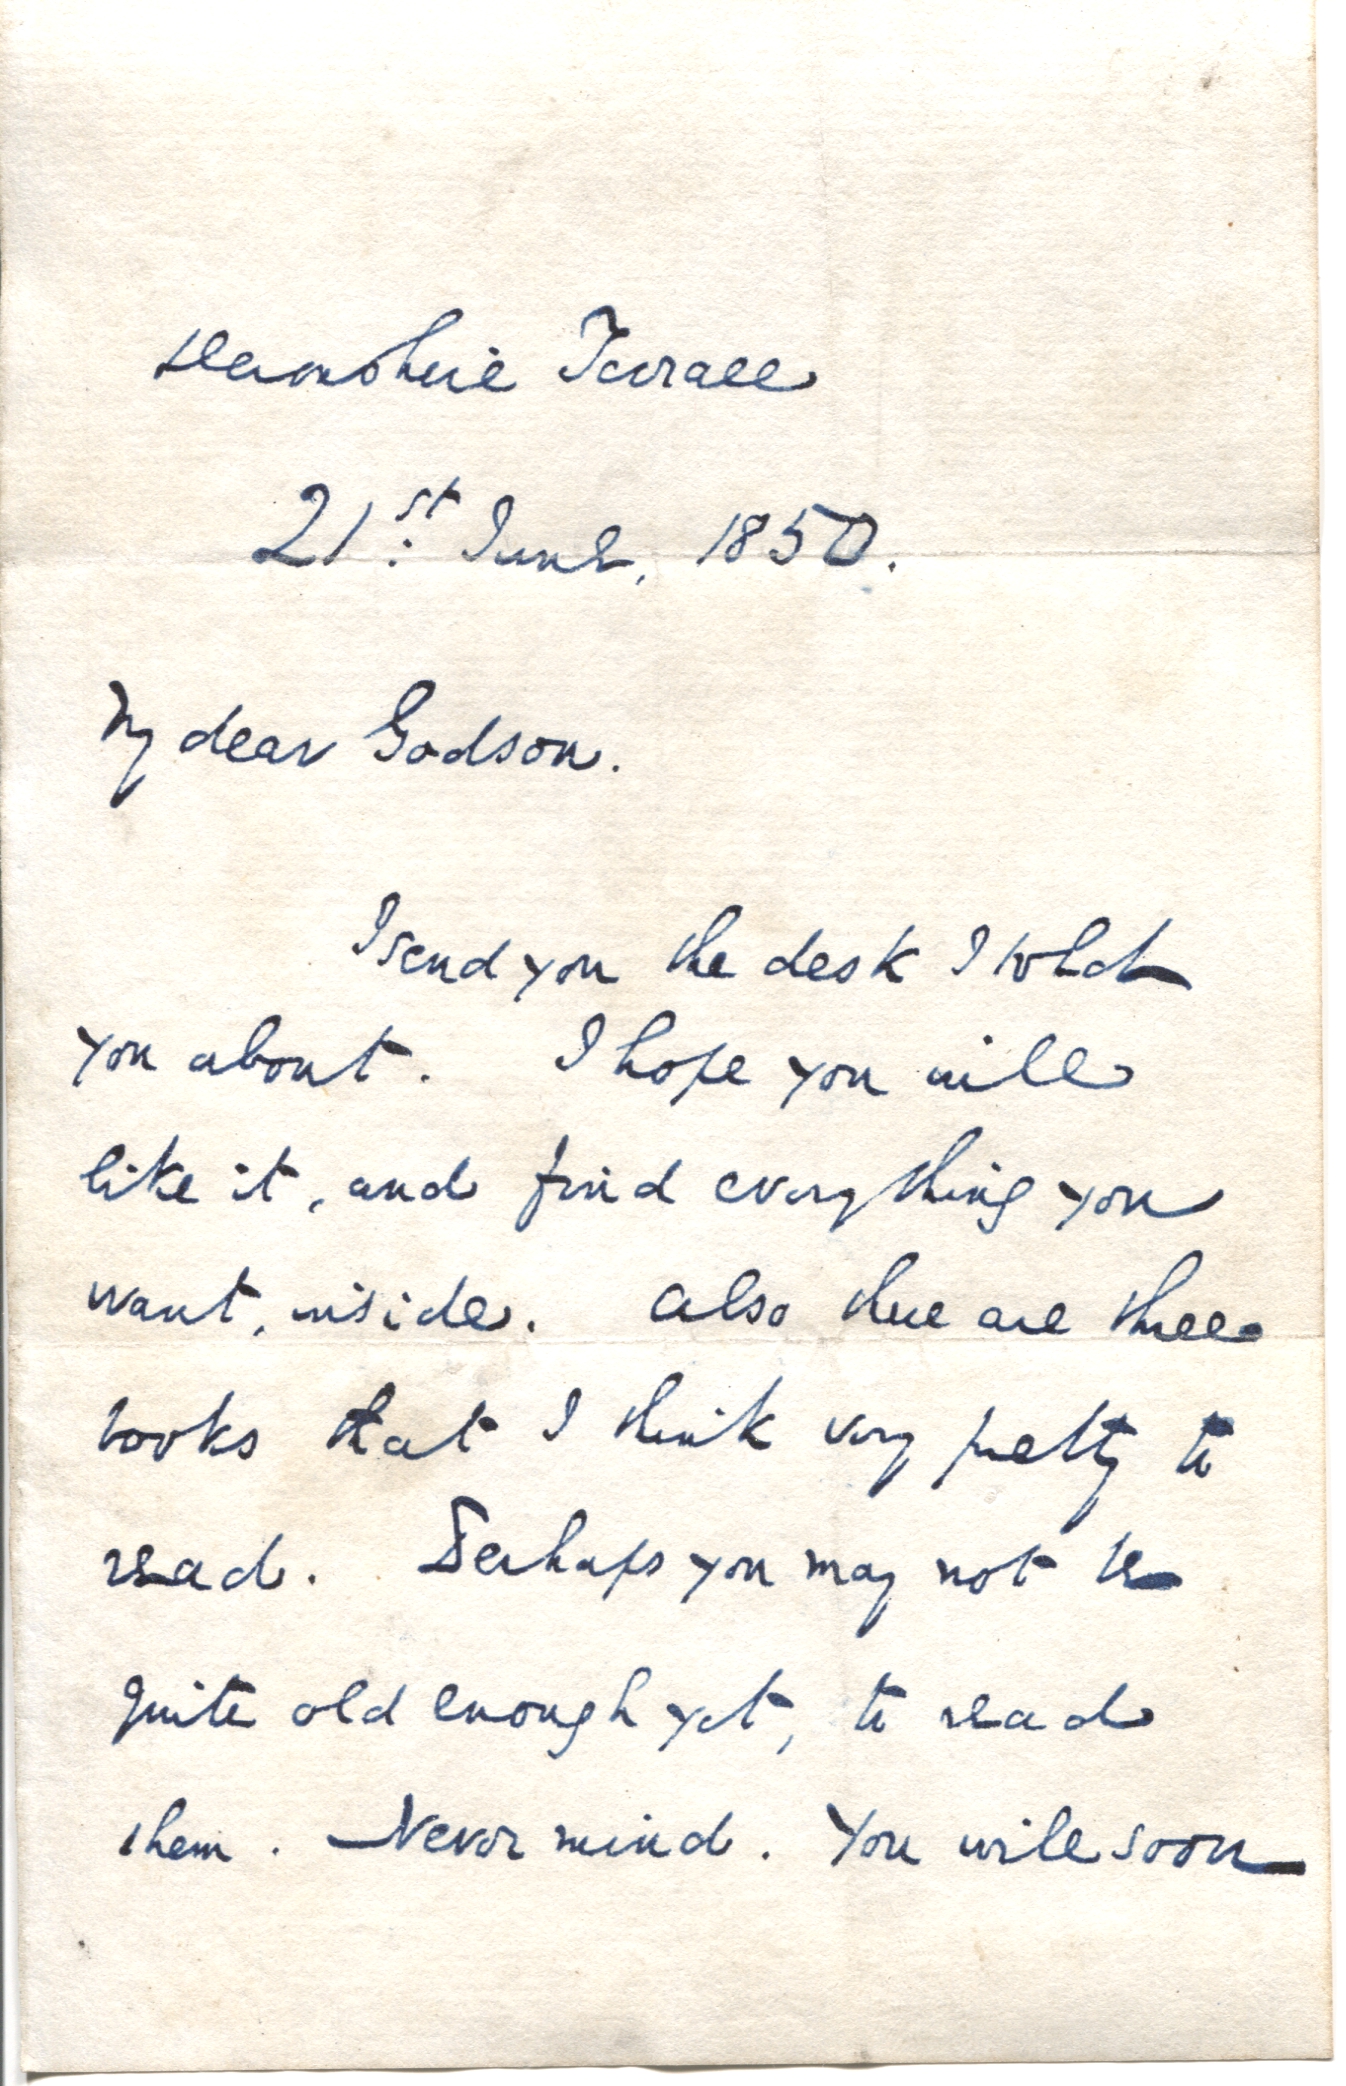 Devonshire Terrace
21st. June, 1850.
My dear Godson.
I send you the desk I told
you about. I hope you will
like it, and find everything you
want, inside. Also there are three
books that I think very pretty to
read. Perhaps you may not be
quite old enough yet, to read
them. Never mind. You will soon